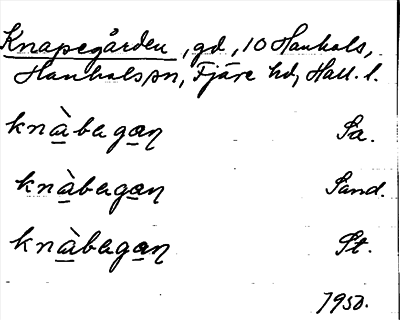 Knapegården, gd, 10 Hanhals,
Hanhals sn, Fjäre hd, Hall. l.
knàbagan̥ Sa.
knàbagan̥ Sand.
knàbagan̥ St.
1950.